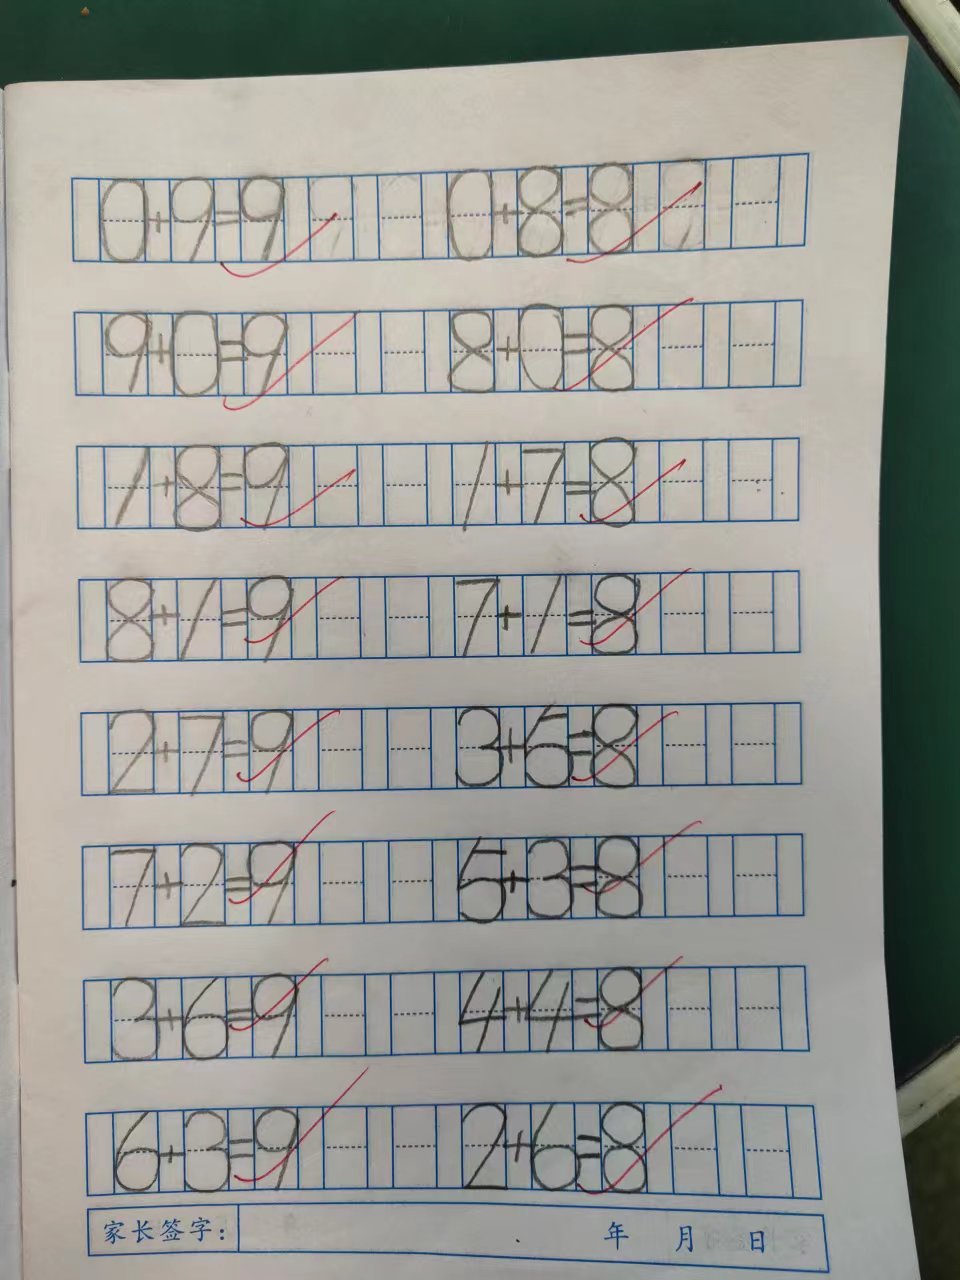 0+9=9 0+8=8
9+0=9 8+0=8
1+8=9 1+7=8
8+1=9 7+1=8
2+7=9 3+5=8
7+2=9 5+3=8
3+6=9 4+4=8
6+3=9 2+6=8
家长签字: 年 月 日